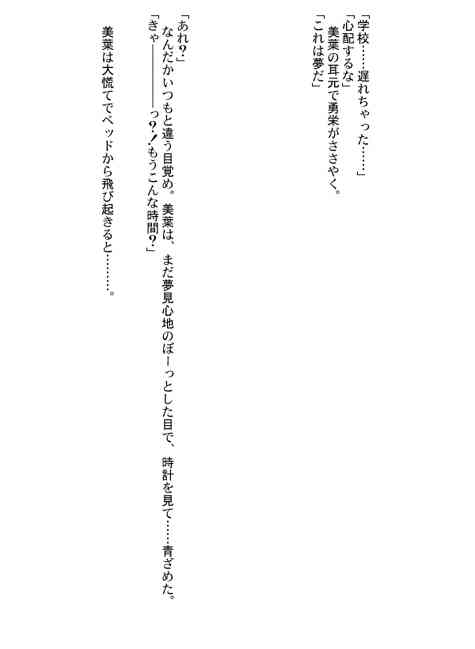 「学校……遅れちゃった……」
「心配するな」
　美葉の耳元で勇栄がささやく。
「これは夢だ」
「あれ？」
　なんだかいつもと違う目覚め。美葉は、まだ夢見心地のぼーっとした目で、時計を見て……青ざめた。
「きゃ――――っ？！もうこんな時間？」
　美葉は大慌てでベッドから飛び起きると………。